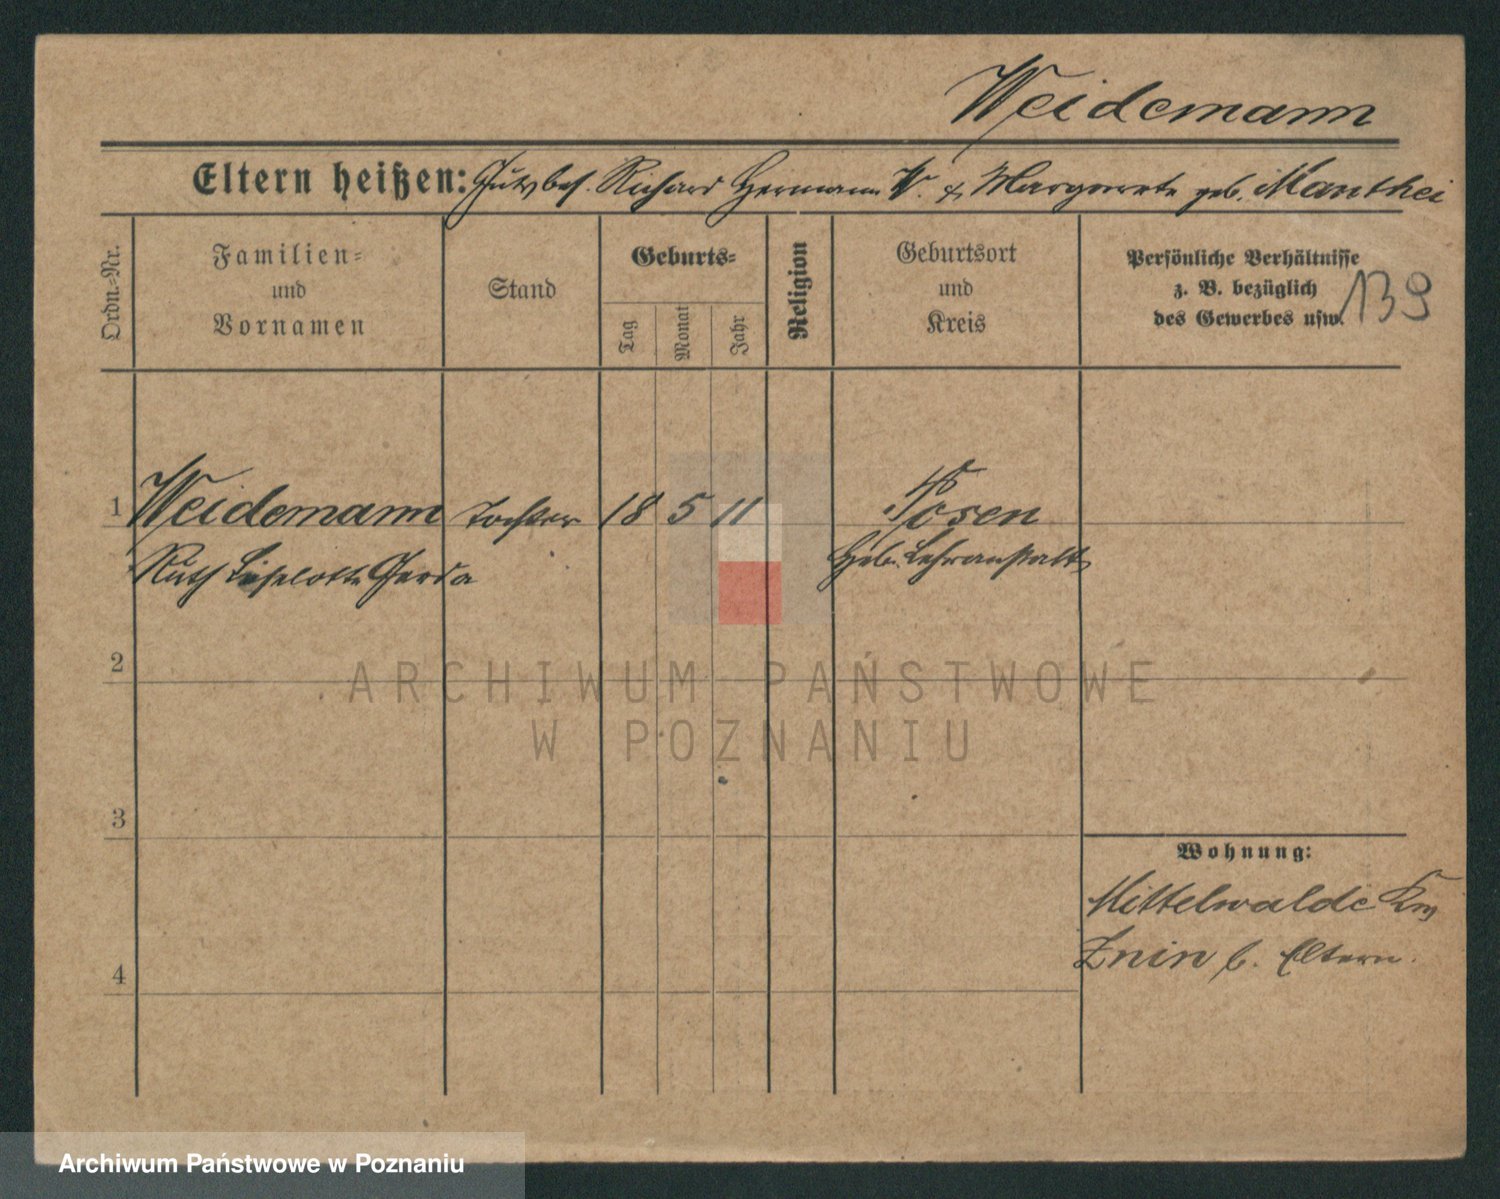 Weidemann
Eltern heißen: Gutsbes. Richard Hermann W. & Margarete geb. Manthei
Ordn.-Nr.
Familien-
und
Vornamen
Stand
Geburts-
Tag
Monat
Jahr
Religion
Geburtsort
und
Kreis
Persönliche Verhältnisse
z. B. bezüglich
des Gewerbes usw.
139
1 Weidemann Tochter 18 5 11 Posen
Ruth Liselotte Gerda Heb. Lehranstalt
2
ARCHIWUM PAŃSTWOWE
W POZNANIU
3
Wohnung:
Mittelwalde Krs
Znin b. Eltern.
4
Archiwum Państwowe w Poznaniu